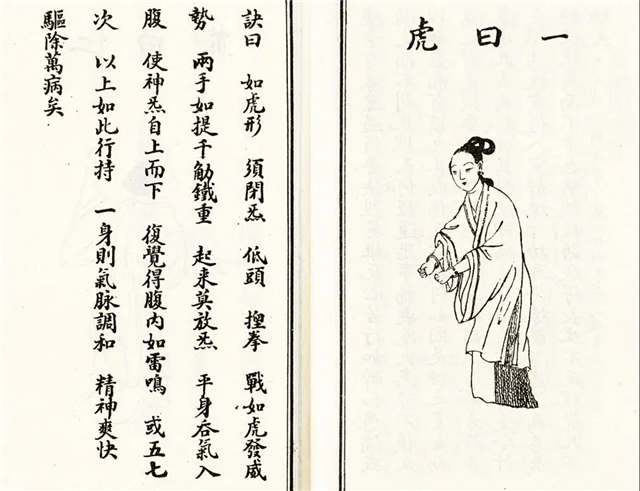 一曰虎
訣曰 如虎形 須閉炁 低頭 揑拳 戰如虎發威
勢 兩手如提千觔鐵重 起来莫放炁 平身吞氣入
腹 使神炁自上而下 復覺得腹内如雷鳴 或五七
次 以上如此行持 一身則氣脉調和 精神爽快
驅除萬病矣